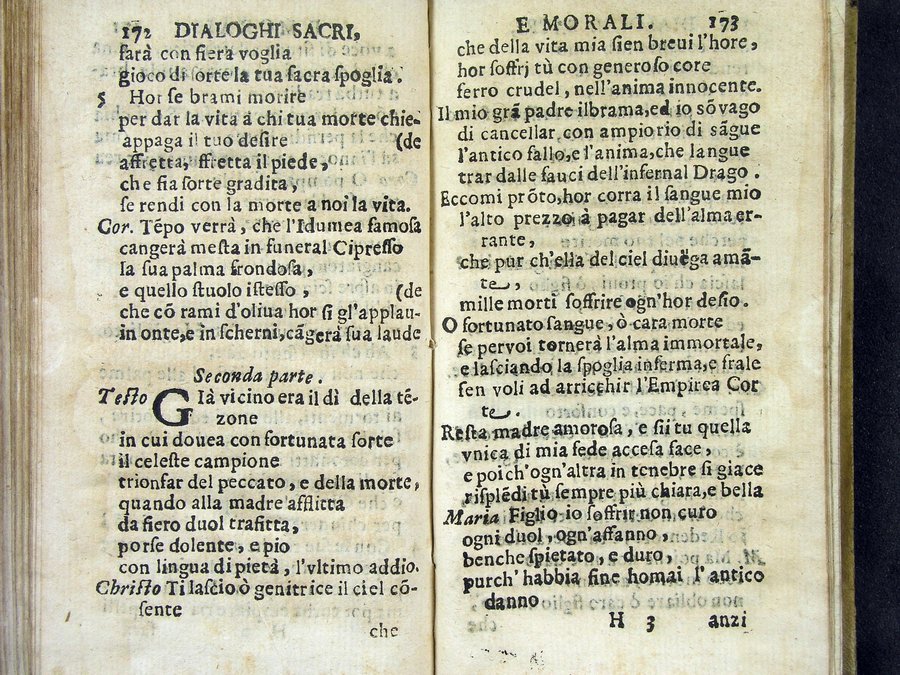 172 DIALOGHI SACRI,
farà con fiera voglia
gioco di forte la tua ſacra ſpoglia.
5 Hor ſe brami morire
per dar la vita à chi tua morte chie-
appaga il tuo deſire (de
affretta, affretta il piede,
che ſia ſorte gradita,
ſe rendi con la morte a noi la vita.
Cor. Tẽpo verrà, che l'Idumea famoſa
cangerà meſta in funeral Cipreſſo
la ſua palma frondoſa,
e quello ſtuolo iſteſſo, (de
che cõ rami d'oliua hor ſi gl'applau-
in onte, e in ſcherni, cãgerà ſua laude
Seconda parte.
Teſto GIà vicino era il dì della tẽ-
zone
in cui douea con fortunata ſorte
il celeſte campione
trionfar del peccato, e della morte,
quando alla madre afflitta
da fiero duol trafitta,
porſe dolente, e pio
con lingua di pietà, l'vltimo addio.
Chriſto Ti laſcio ò genitrice il ciel cõ-
ſente
che
E MORALI. 173
che della vita mia ſien breui l'hore,
hor ſoffrj tù con generoſo core
ferro crudel, nell'anima innocente.
Il mio grã padre il brama, ed io sõ vago
di cancellar con ampio rio di sãgue
l'antico fallo, e l'anima, che langue
trar dalle fauci dell'infernal Drago.
Eccomi prõto, hor corra il ſangue mio
l'alto prezzo à pagar dell'alma er-
rante,
che pur ch'ella del ciel diuẽga amã-
te,
mille morti ſoffrire ogn'hor deſio.
O fortunato ſangue, ò cara morte
ſe per voi tornerà l'alma immortale,
e laſciando la ſpoglia inferma, e frale
ſen voli ad arricchir l'Empirea Cor
te.
Reſta madre amoroſa, e ſii tu quella
vnica di mia fede acceſa face,
e poi ch'ogn'altra in tenebre ſi giace
riſplẽdi tù ſempre più chiara, e bella
Maria Figlio io ſoffrir non curo
ogni duol, ogn'affanno,
benche ſpietato, e duro,
purch'habbia fine homai l'antico
danno
H 3 anzi